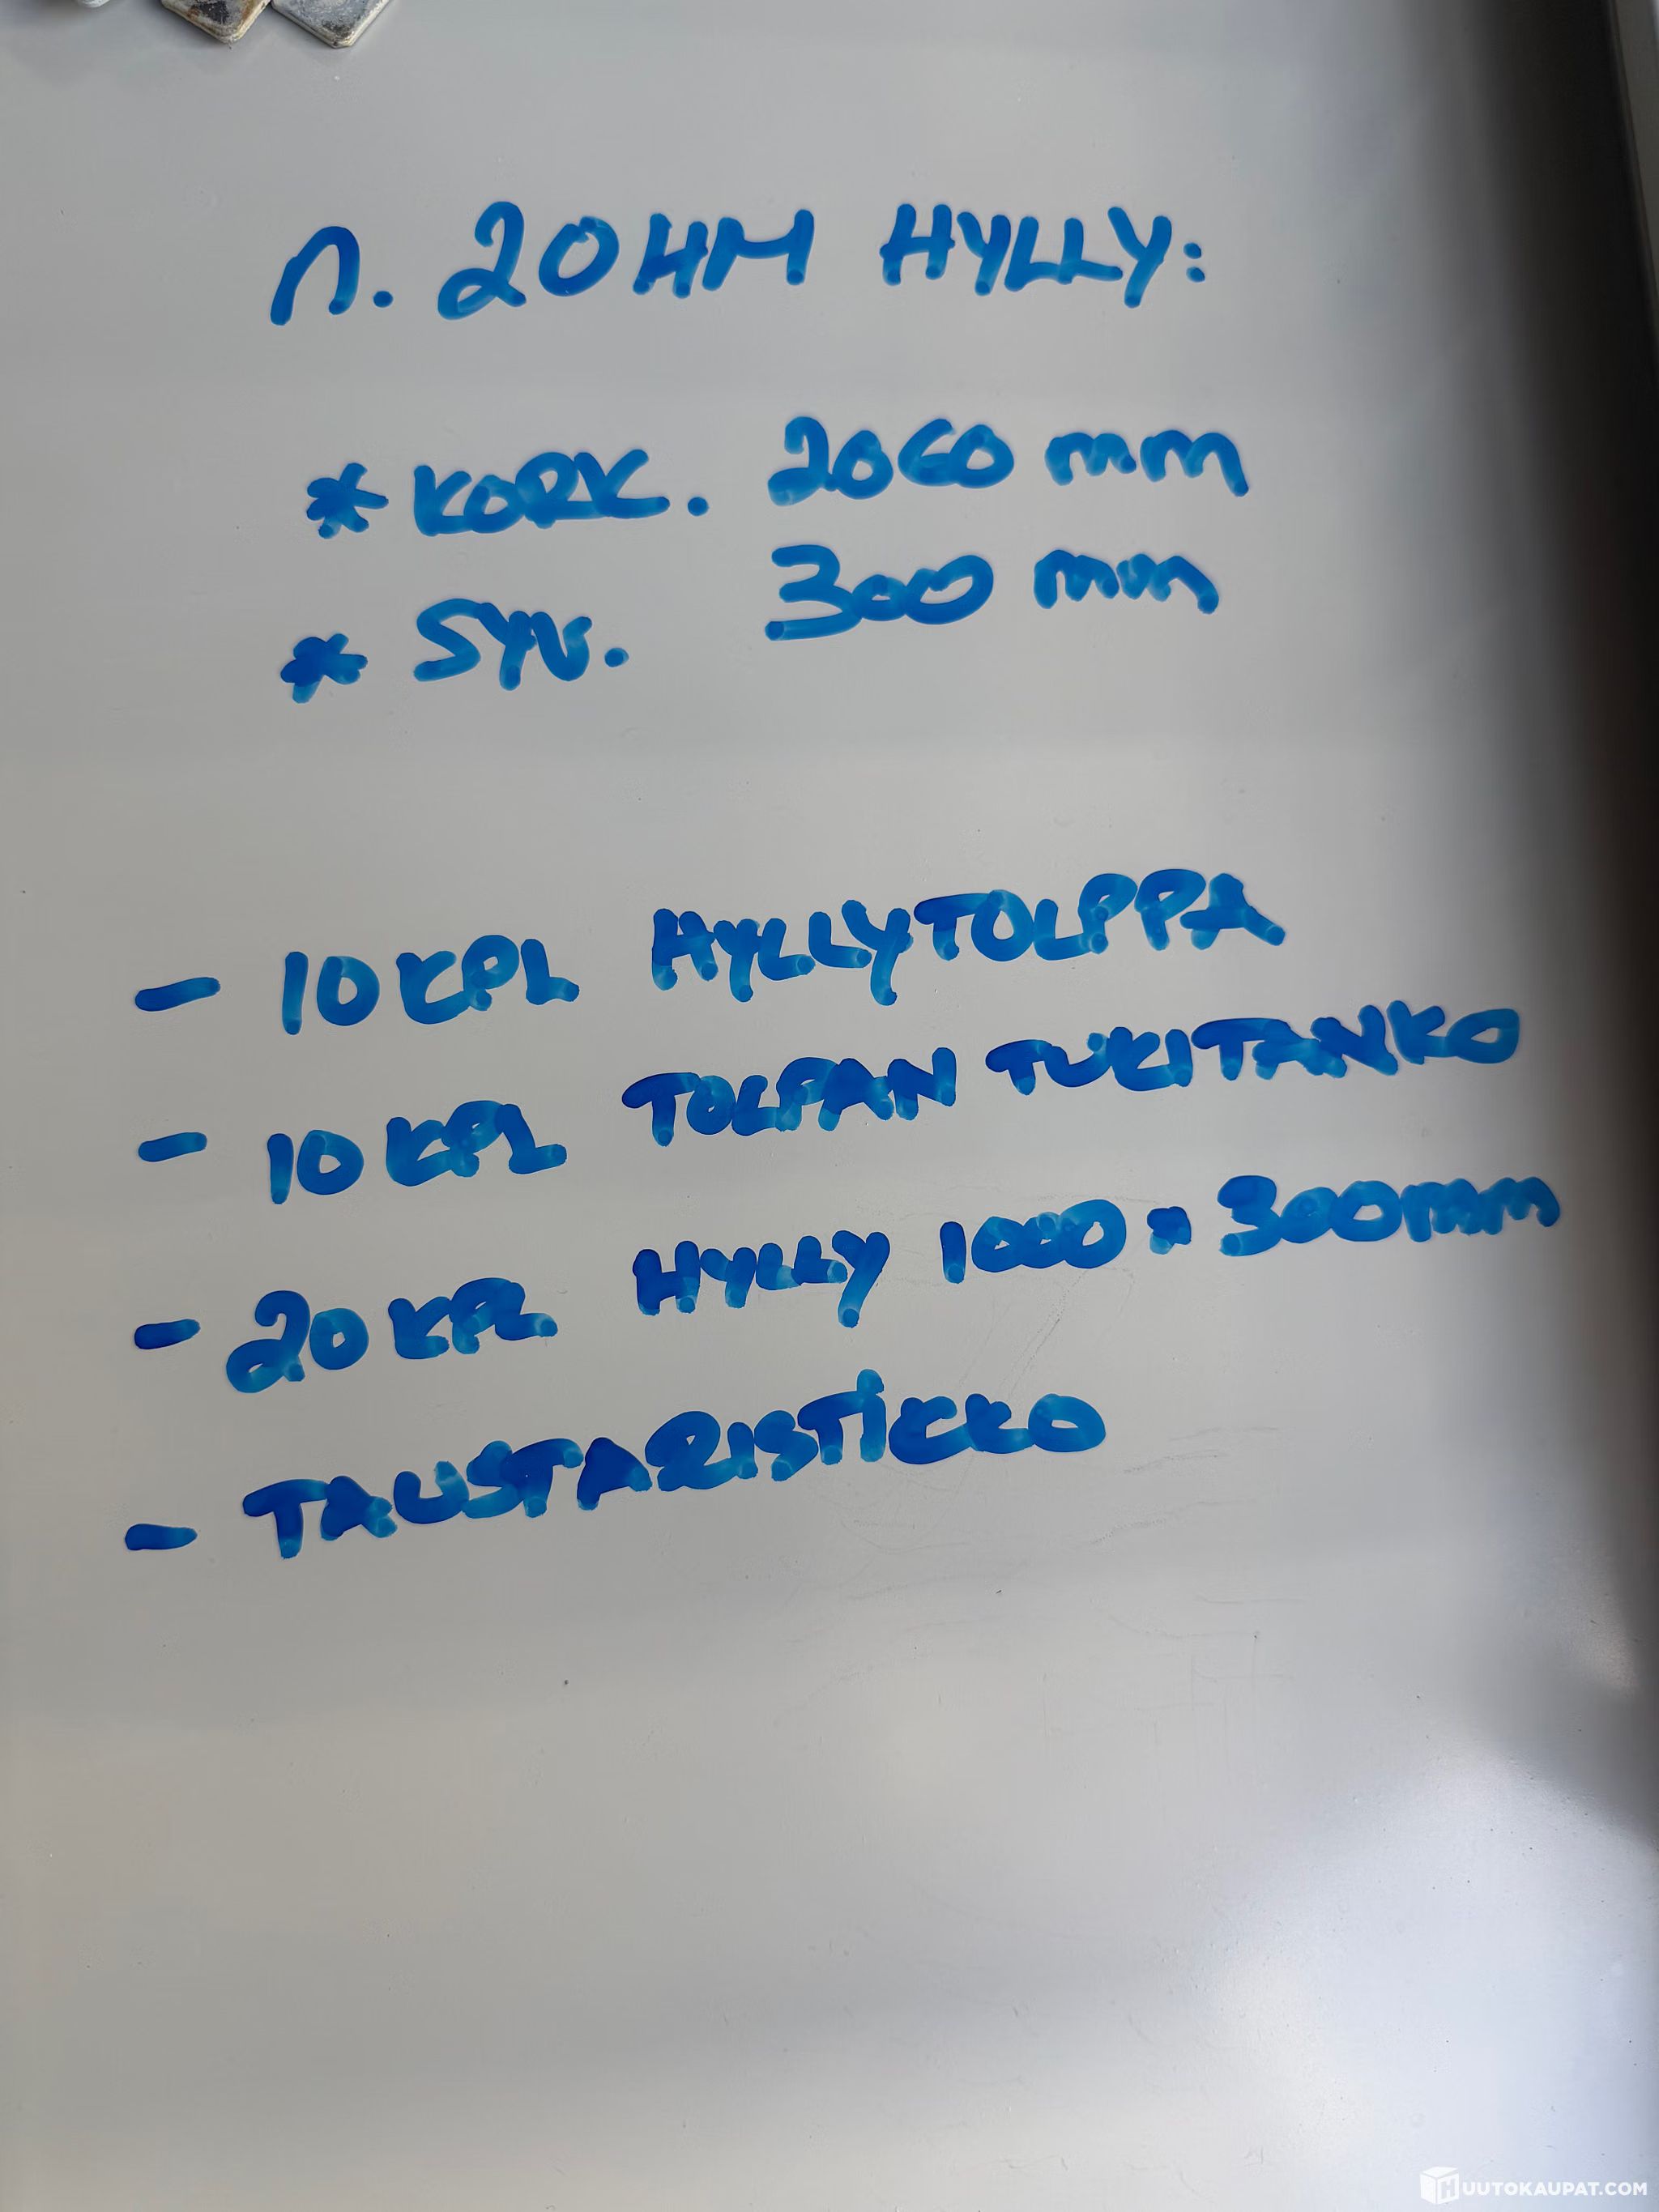 n. 20 HM HYLLY:
* KORK. 2060 mm
* SYV. 300 mm
- 10 KPL HYLLYTOLPPA
- 10 KPL TOLPAN TUKITANKO
- 20 KPL HYLLY 1000 * 300mm
- TAUSTARISTIKKO
HUUTOKAUPAT.COM